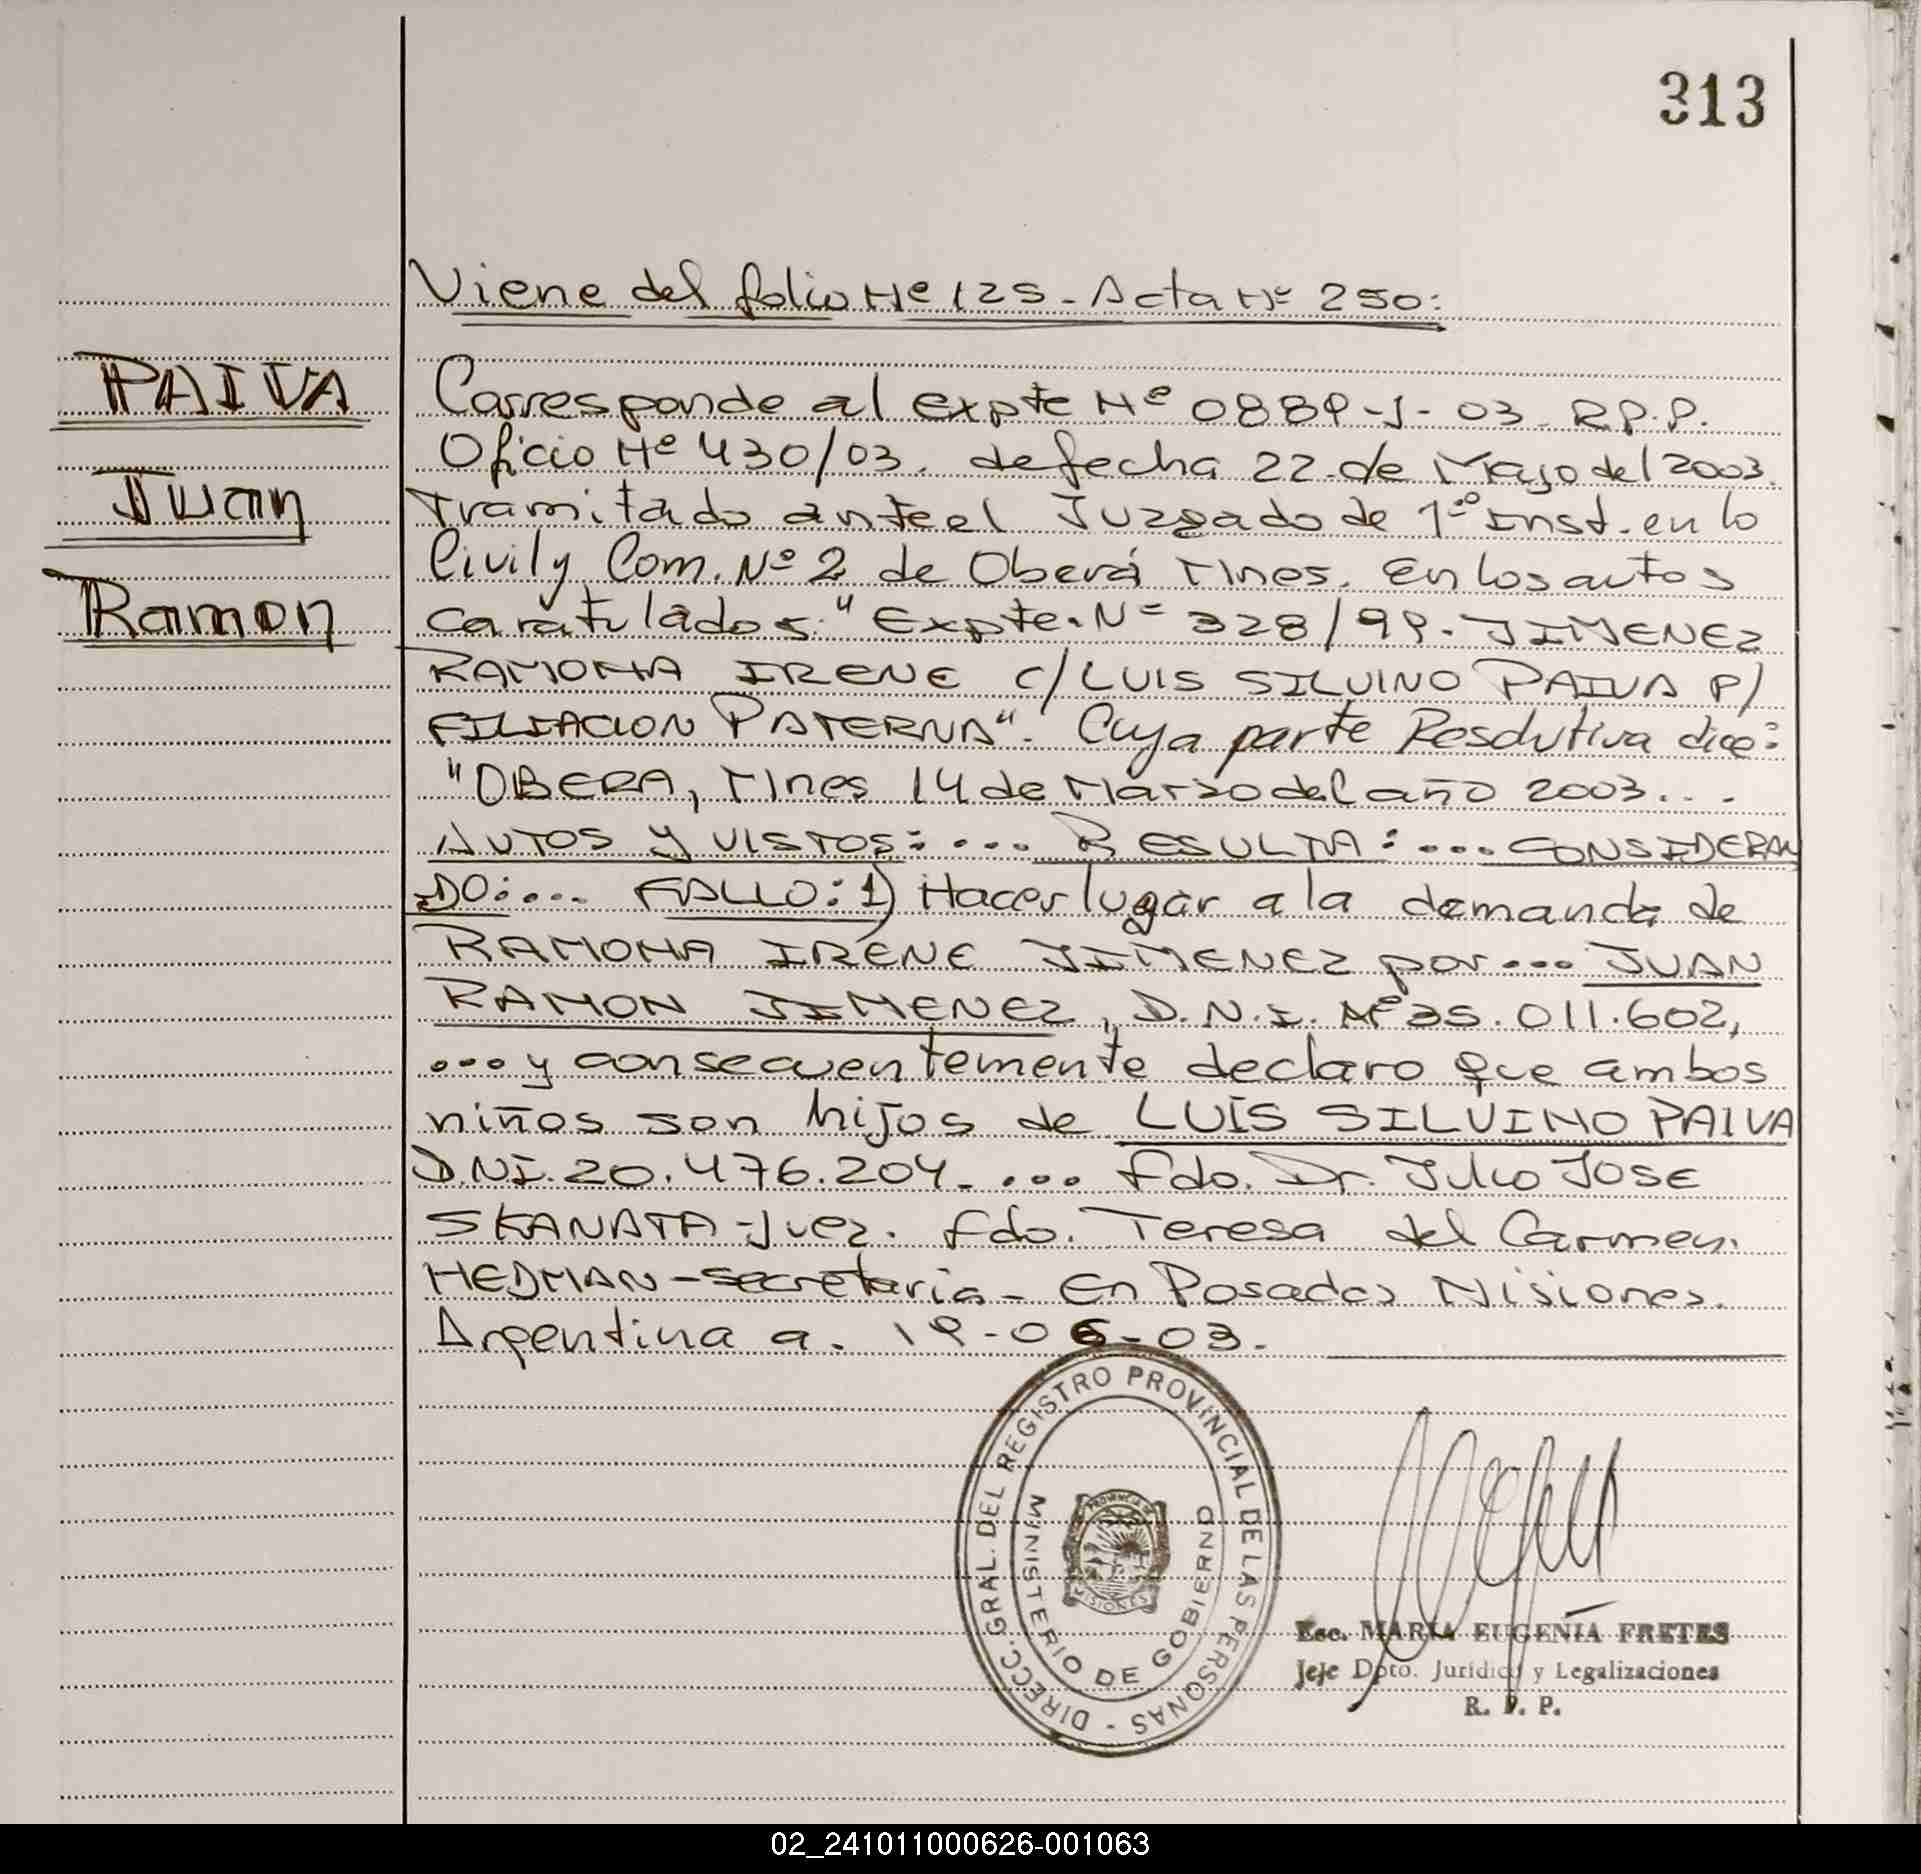 313
Viene del folio Nº 125 - Acta Nº 250:
PAIVA
Juan
Ramon
Corresponde al expte Nº 0889-J-03 R.P.P.
Oficio Nº 430/03. de fecha 22 de Mayo del 2003.
Tramitado ante el Juzgado de 1º Inst. en lo
Civil y Com. Nº 2 de Oberá Mnes. En los autos
caratulados: "Expte. Nº 328/99. JIMENEZ
RAMONA IRENE c/ LUIS SILVINO PAIVA P/
FILIACION PATERNA". Cuya parte Resolutiva dice:
"OBERA, Mnes 14 de Marzo del año 2003...
AUTOS Y VISTOS:... RESULTA:... CONSIDERAN
DO:... FALLO: 1) Hacer lugar a la demanda de
RAMONA IRENE JIMENEZ por... JUAN
RAMON JIMENEZ, D.N.I. Nº 35.011.602,
... y consecuentemente declaro que ambos
niños son hijos de LUIS SILVINO PAIVA
D.NI. 20.476.204. ... Fdo. Dr. Julio JOSE
SKANATA - Juez. Fdo. Teresa del Carmen
HEDMAN - Secretaria - En Posadas Misiones.
Argentina a. 19-06-03.
DIRECC. GRAL. DEL REGISTRO PROVINCIAL DE LAS PERSONAS -
MINISTERIO DE GOBIERNO
PROVINCIA DE
MISIONES
Esc. MARIA EUGENIA FRETES
Jefe Dpto. Jurídico y Legalizaciones
R. P. P.
02_241011000626-001063